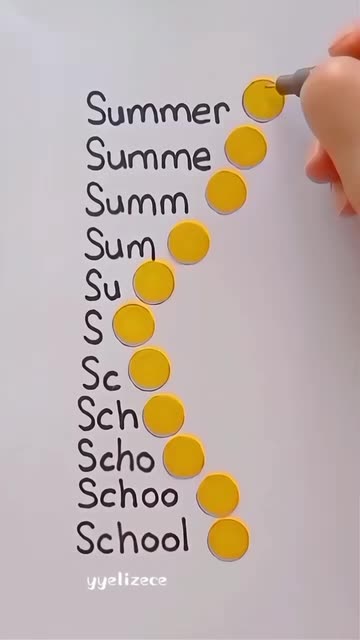 Summer
Summe
Summ
Sum
Su
S
Sc
Sch
Scho
Schoo
School
yyelizece